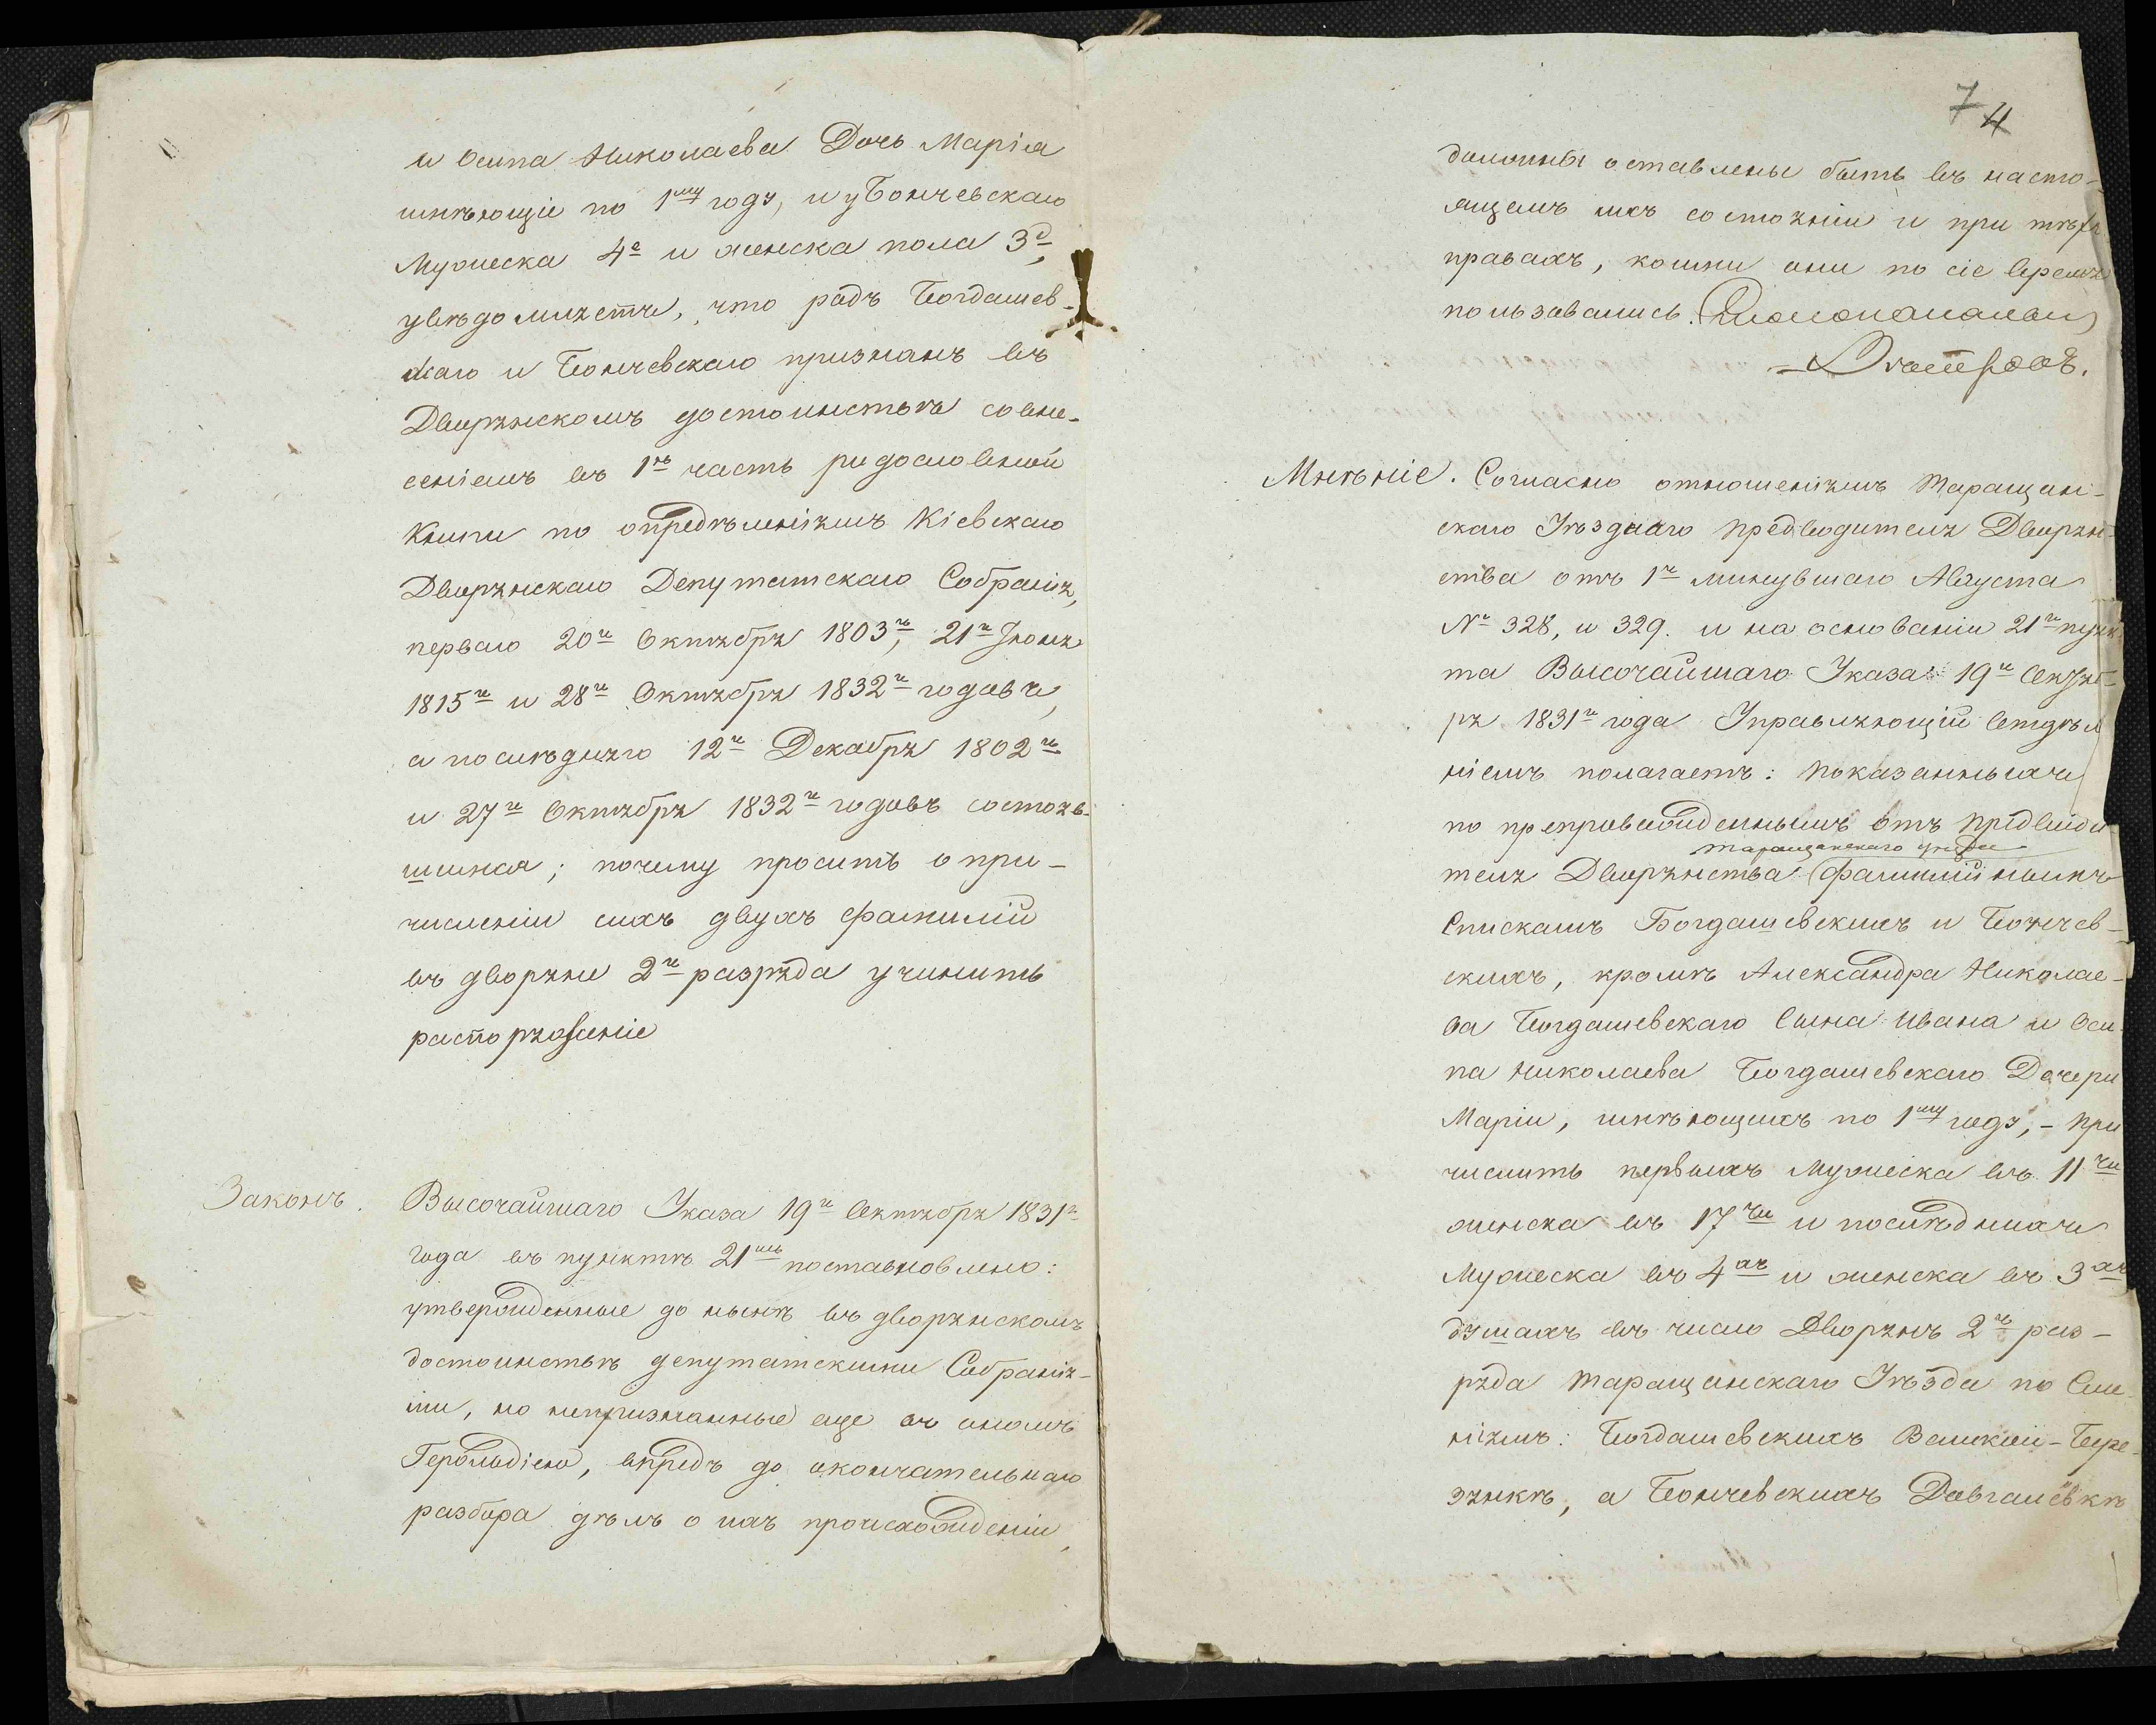 и Осипа Николаева Дочь Марія
имѣющіе по 1му году, и у Бончевскаго
Мужеска 4е и женска пола 3е,
увѣдомляетъ, что родъ Богдашев-
скаго и Бончевскаго признанъ въ
Дворянскомъ достоинствѣ со вне-
сеніемъ въ 1ю часть родословной
Книги по опредѣленіямъ Кіевскаго
Дворянскаго Депутатскаго Собранія,
перваго 20го Октября 1803го, 21го Іюня
1815го и 28го Октября 1832го годовъ,
а послѣдняго 12го Декабря 1802го
и 27го Октября 1832го годовъ состояв-
шимся; почему проситъ о при-
численіи сихъ двухъ фамилій
въ дворяне 2го разряда учинить
распоряженіе
Законъ. Высочайшаго Указа 19го Октября 1831го
года въ пунктѣ 21мъ постановлено:
утвержденные до нынѣ въ дворянскомъ
достоинствѣ депутатскими Собрания-
ми, но непризнанные еще въ ономъ
Герольдіею, впредь до окончательнаго
разбора дѣлъ о ихъ происхожденіи,
7 4
должны оставлены быть въ насто-
ящемъ ихъ состояніи и при тѣхъ
правахъ, коими они по сіе время
пользовались.
Мнѣніе. Согласно отношеніямъ Таращан-
скаго Уѣзднаго Предводителя Дворян-
ства отъ 1го минувшаго Августа
№ 328, и 329. и на основаніи 21го пунк-
та Высочайшаго Указа 19го Октяб-
ря 1831го года Управляющій Отдѣле-
ніемъ полагаетъ: показанныхъ
по препровожденнымъ отъ Предводи-
Таращанскаго уѣзда
теля Дворянства фамилійнымъ
Спискамъ Богдашевскихъ и Бончев-
скихъ, кромѣ Александра Николае-
ва Богдашевскаго Сына Ивана и Оси-
па Николаева Богдашевскаго Дочери
Маріи, имѣющихъ по 1му году, - при
числить первыхъ Мужеска въ 11ти
женска въ 17ти и послѣднихъ
Мужеска въ 4хъ и женска въ 3хъ
душахъ въ число Дворянъ 2го раз-
ряда Таращанскаго Уѣзда по Селе-
ніямъ: Богдашевскихъ Великой-Бере-
зянкѣ, а Бончевскихъ Довгалёвкѣ